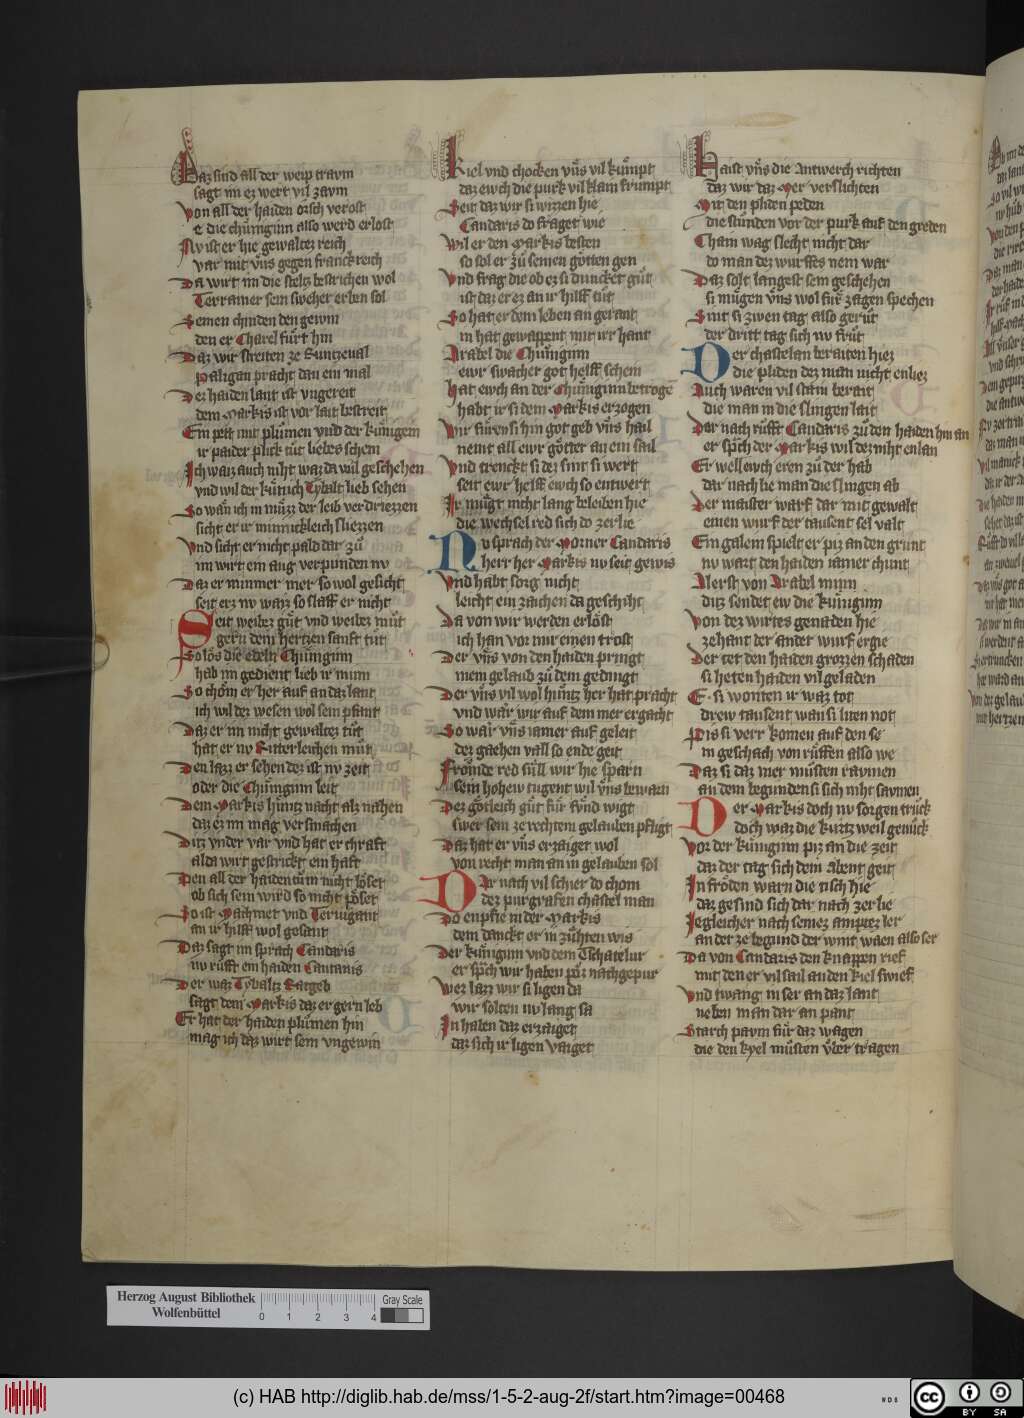 Daz sind all der weip travm
sagt im ez wert vil zavm
Von all der haiden örsch verost
e die chünginn also werd erlost
Nv ist er hie gewaltez reich
var mit vns gegen franckreich
Da wirt im die steltz bestrichen wol
Terramer sein sweher erben sol
Seinen chinden den gewin
den er Charel fürt hin
Daz wir streiten ze Runtzeval
paligan pracht dan ein mal
Dez haiden lant ist vngereit
dem Markis ist vor lait bestreit
Ein pett mit plümen vnd der künigein
ir paider plick tüt liebes schein
Ich waiz auch niht waz da wil geschehen
vnd wil der künich Tybalt lieb sehen
So wär ich in müzz der leib verdriezzen
sicht er ir minnickleich sliezzen
Vnd sicht er nicht pald dar zü
im wirt ein aug verpunden nv
Daz er nimmer mer so wol gesicht
seit erz nv waiz so slaff er nicht
Seit weibez güt vnd weibez müt
gern dem hertzen sanft tüt
So lös die edeln Chünginn
hab im gedient lieb ir minn
So chöm er her auf an daz lant
ich wil dez wesen wol sein pfant
Daz er im nicht gewaltez tüt
hat er nv Ritterleichen müt
Den lazz er sehen dez ist nv zeit
oder die Chünginn leit
Dem Markis hüntz nacht alz nahen
daz ez im mag versmachen
Ditz vnder var vnd hat er chraft
alda wirt gestrickt ein haft
Den all der haidentüm nicht löset
ob sich sein wird so nicht pöset
So ist Machmet vnd Tervigant
an ir hilff wol gesant
Daz sagt im sprach Candaris
nv rüfft ein haiden Cautanis
Der waz Tybaltz Ratgeb
sagt dem Markis daz er gern leb
Er hat der haiden plümen hin
mag ich daz wirt sein vngewin
Kiel vnd chocken vns vil kümpt
daz ewch die purk vil klain frumpt
Seit daz wir si wizzen hie
Candaris do fraget wie
Wil er den Markis besten
so sol er zü seinen götten gen
Vnd frag die ob ez si duncket güt
ist daz er ez an ir hilff tüt
So hat er dem leben an gerant
in hat gewappent mit irr hant
Arabel die Chünginn
ewr swacher got helff schein
Hat ewch an der Chünginn betrogē
habt ir si dem Markis erzogen
Wir füren si hin got geb vns hail
nemt all ewr götter an ein sail
Vnd trenckt si dez sint si wert
seit ewr helff ewch so entwert
Ir mügt nicht lang beleiben hie
die wechsel red sich do zerlie
Nv sprach der Womer Candaris
herr her Markis nv seit gewis
Vnd habt sorg nicht
leicht ein zaichen da geschiht
Da von wir werden erlöst
ich han vor mir einen trost
Der vns von den haiden pringt
mein gelaub zü dem gedingt
Der vns vil wol hüntz her hat pracht
vnd wär wir auf dem mer ergacht
So wär vns iamer auf geleit
dez gaehen vall so ende geit
Frömde red süll wir hie sparn
sein hohew tugent wil vns bewarn
Dez götleich güt für sünd wigt
swer sein ze rechtem gelauben pfligt
Daz hat er vns erzaiget wol
von recht man an in gelauben sol
Dar nach vil schier do chom
dez purgrafen chastel man
Do enpfie in der Markis
dem danckt er in zühten wis
Der künginn vnd dem Tschatelur
er spch wir haben pöz nachgepur
Wez lazz wir si ligen da
wir solten nv lang sa
In haben daz erzaiget
daz sich ir ligen vaiget
Haist vns die Antwerch richten
daz wir daz Mer verslichten
Mit den pliden peden
die stunden vor der purk auf den greden
Cham wag slecht nicht dar
do man dez wurffes nem war
Daz solt langest sein geschehen
si mügen vns wol für zagen spechen
Sint si zwen tag also gerüt
der dritt tag sich nv früt
Der chastelan beraiten hiez
die pliden dez man nicht enliez
Auch waren vil stain berait
die man in die slingen lait
Dar nach rüfft Candaris zü den haiden hin an
er spch der Markis wil dez niht enlan
Er well ewch eren zü der hab
dar nach lie man die slingen ab
Der maister warf dar mit gewalt
einen wurf der tausent sel valt
Ein galein spielt er piz an den grunt
nv wart den haiden iamer chunt
Alerst von Arabel minn
ditz sendet ew die künginn
Von dez wirtes genaden hie
zehant der ander wurf ergie
Der tet den haiden grozzen schaden
si heten haiden vil geladen
E si wonten ir waz tot
drew tausent wan si liten not
Pis si verr komen auf den se
in geschach von rüffen also we
Daz si daz mer müsten ravmen
an dem begunden si sich niht savmen
Der Markis doch nv sorgen trück
doch waz die kurtz weil genück
Vor der künginn piz an die zeit
daz der tag sich dem abent geit
In fröden warn die tisch hie
daz gesind sich dar nach zerlie
Iegleicher nach seinez amptez ler
an der ze begund der wint waen also ser
Da von Candaris den knappen rief
mit den er vil sail an den kiel swief
Vnd twang in ser an daz lant
neben man dar an pant
Starch pavm für daz wagen
die den kyel müsten vber tragen
Herzog August Bibliothek
Wolfenbüttel
0 1 2 3 4
Gray Scale
(c) HAB http://diglib.hab.de/mss/1-5-2-aug-2f/start.htm?image=00468
cc BY SA